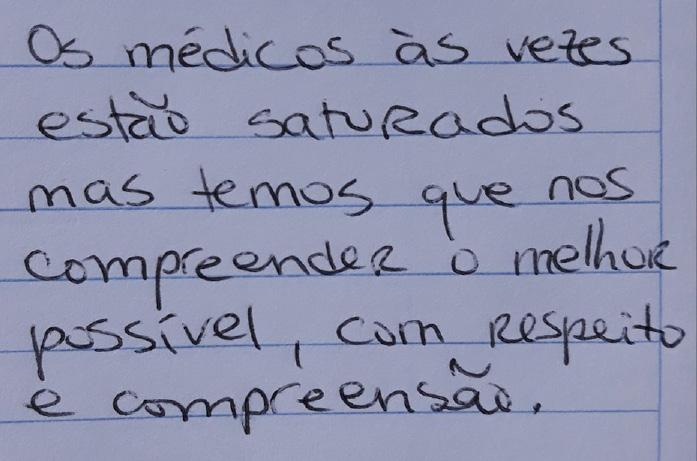 Os médicos às vezes
estão saturados
mas temos que nos
compreender o melhor
possível, com respeito
e compreensão.